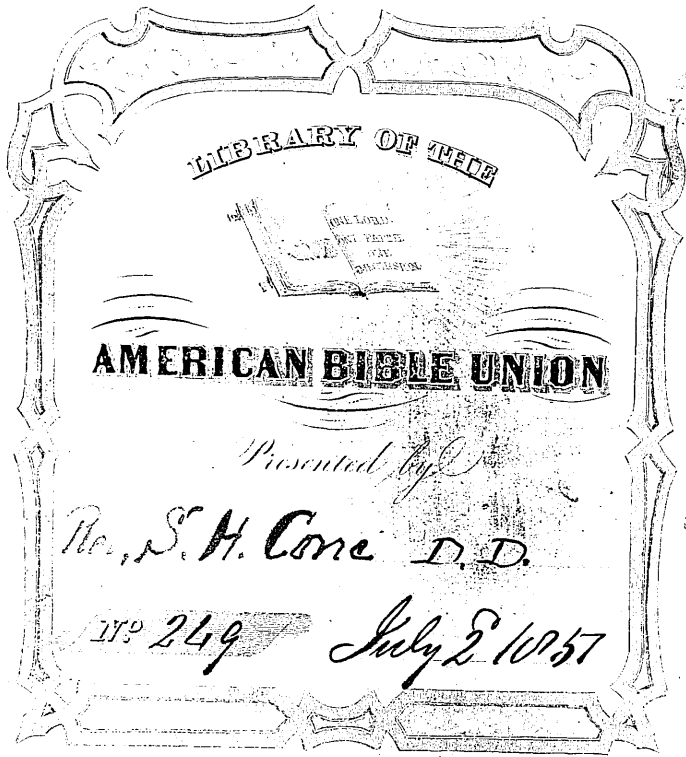 LIBRARY OF THE
ONE LORD.
ONE FAITH.
ONE
IMMERSION.
AMERICAN BIBLE UNION
Presented by
Rev. S. H. Cone D. D.
No 249 July 2 1851